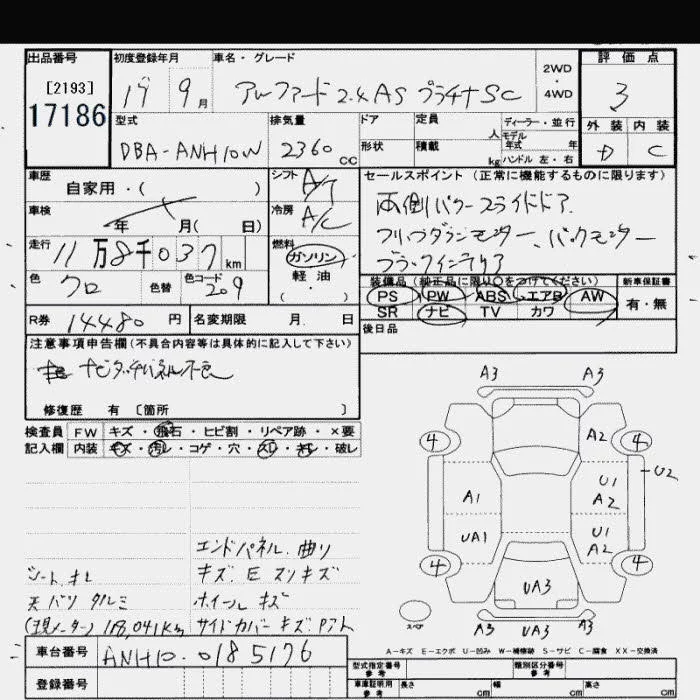 出品番号 初度登録年月 車名・グレード 2WD ・ 4WD 評価点
[2193] 17186
19 9月
アルファード 2.4AS プラチナSC
3
型式 DBA-ANH10W
排気量 2360 CC
ドア 形状
定員 人 積載 kg
ディーラー・並行
モデル年式 年式
ハンドル 左・右
外装 内装
D C
車歴 自家用・( )
シフト A/T
車検 年 月( 日)
冷房 A/C
走行 11万8千037 km
燃料 ガソリン ・ 軽油 ・ ( )
色 クロ 色替 色コード 209
R券 14480円 名変期限 月 日
セールスポイント (正常に機能するものに限ります)
両側パワースライドドア.
フリップダウンモニター、バックモニター
装備品 (純正品に限り○をつけてください) 新車保証書
PS PW ABS エアB AW 有・無
SR ナビ TV カワ
後日品
注意事項申告欄(不具合内容等は具体的に記入して下さい)
ナビタッチパネル不良
修復歴 有 〔箇所 〕
検査員 FW キズ・飛石・ヒビ割・リペア跡・×要
記入欄 内装 キズ・汚レ・コゲ・穴・スレ・キレ・破レ
エンドパネル. 曲り
シート. キレ キズ. E スリキズ
天バリ タルミ ホイール キズ
(現メーター) 118,041Km サイドカバー キズ Pアト
車台番号 ANH10-0185176
登録番号
A3 A3
4 A2 4
U2
A1 U1 A2
UA1 U1 A2
4 4
UA3
スペア A3 UA3 A3
A-キズ E-エクボ U-凹み W-補修跡 S-サビ C-腐食 XX-交換済
型式指定番号 参考 類別区分番号 参考
車庫証明用 参考 長さ cm 幅 cm 高さ cm